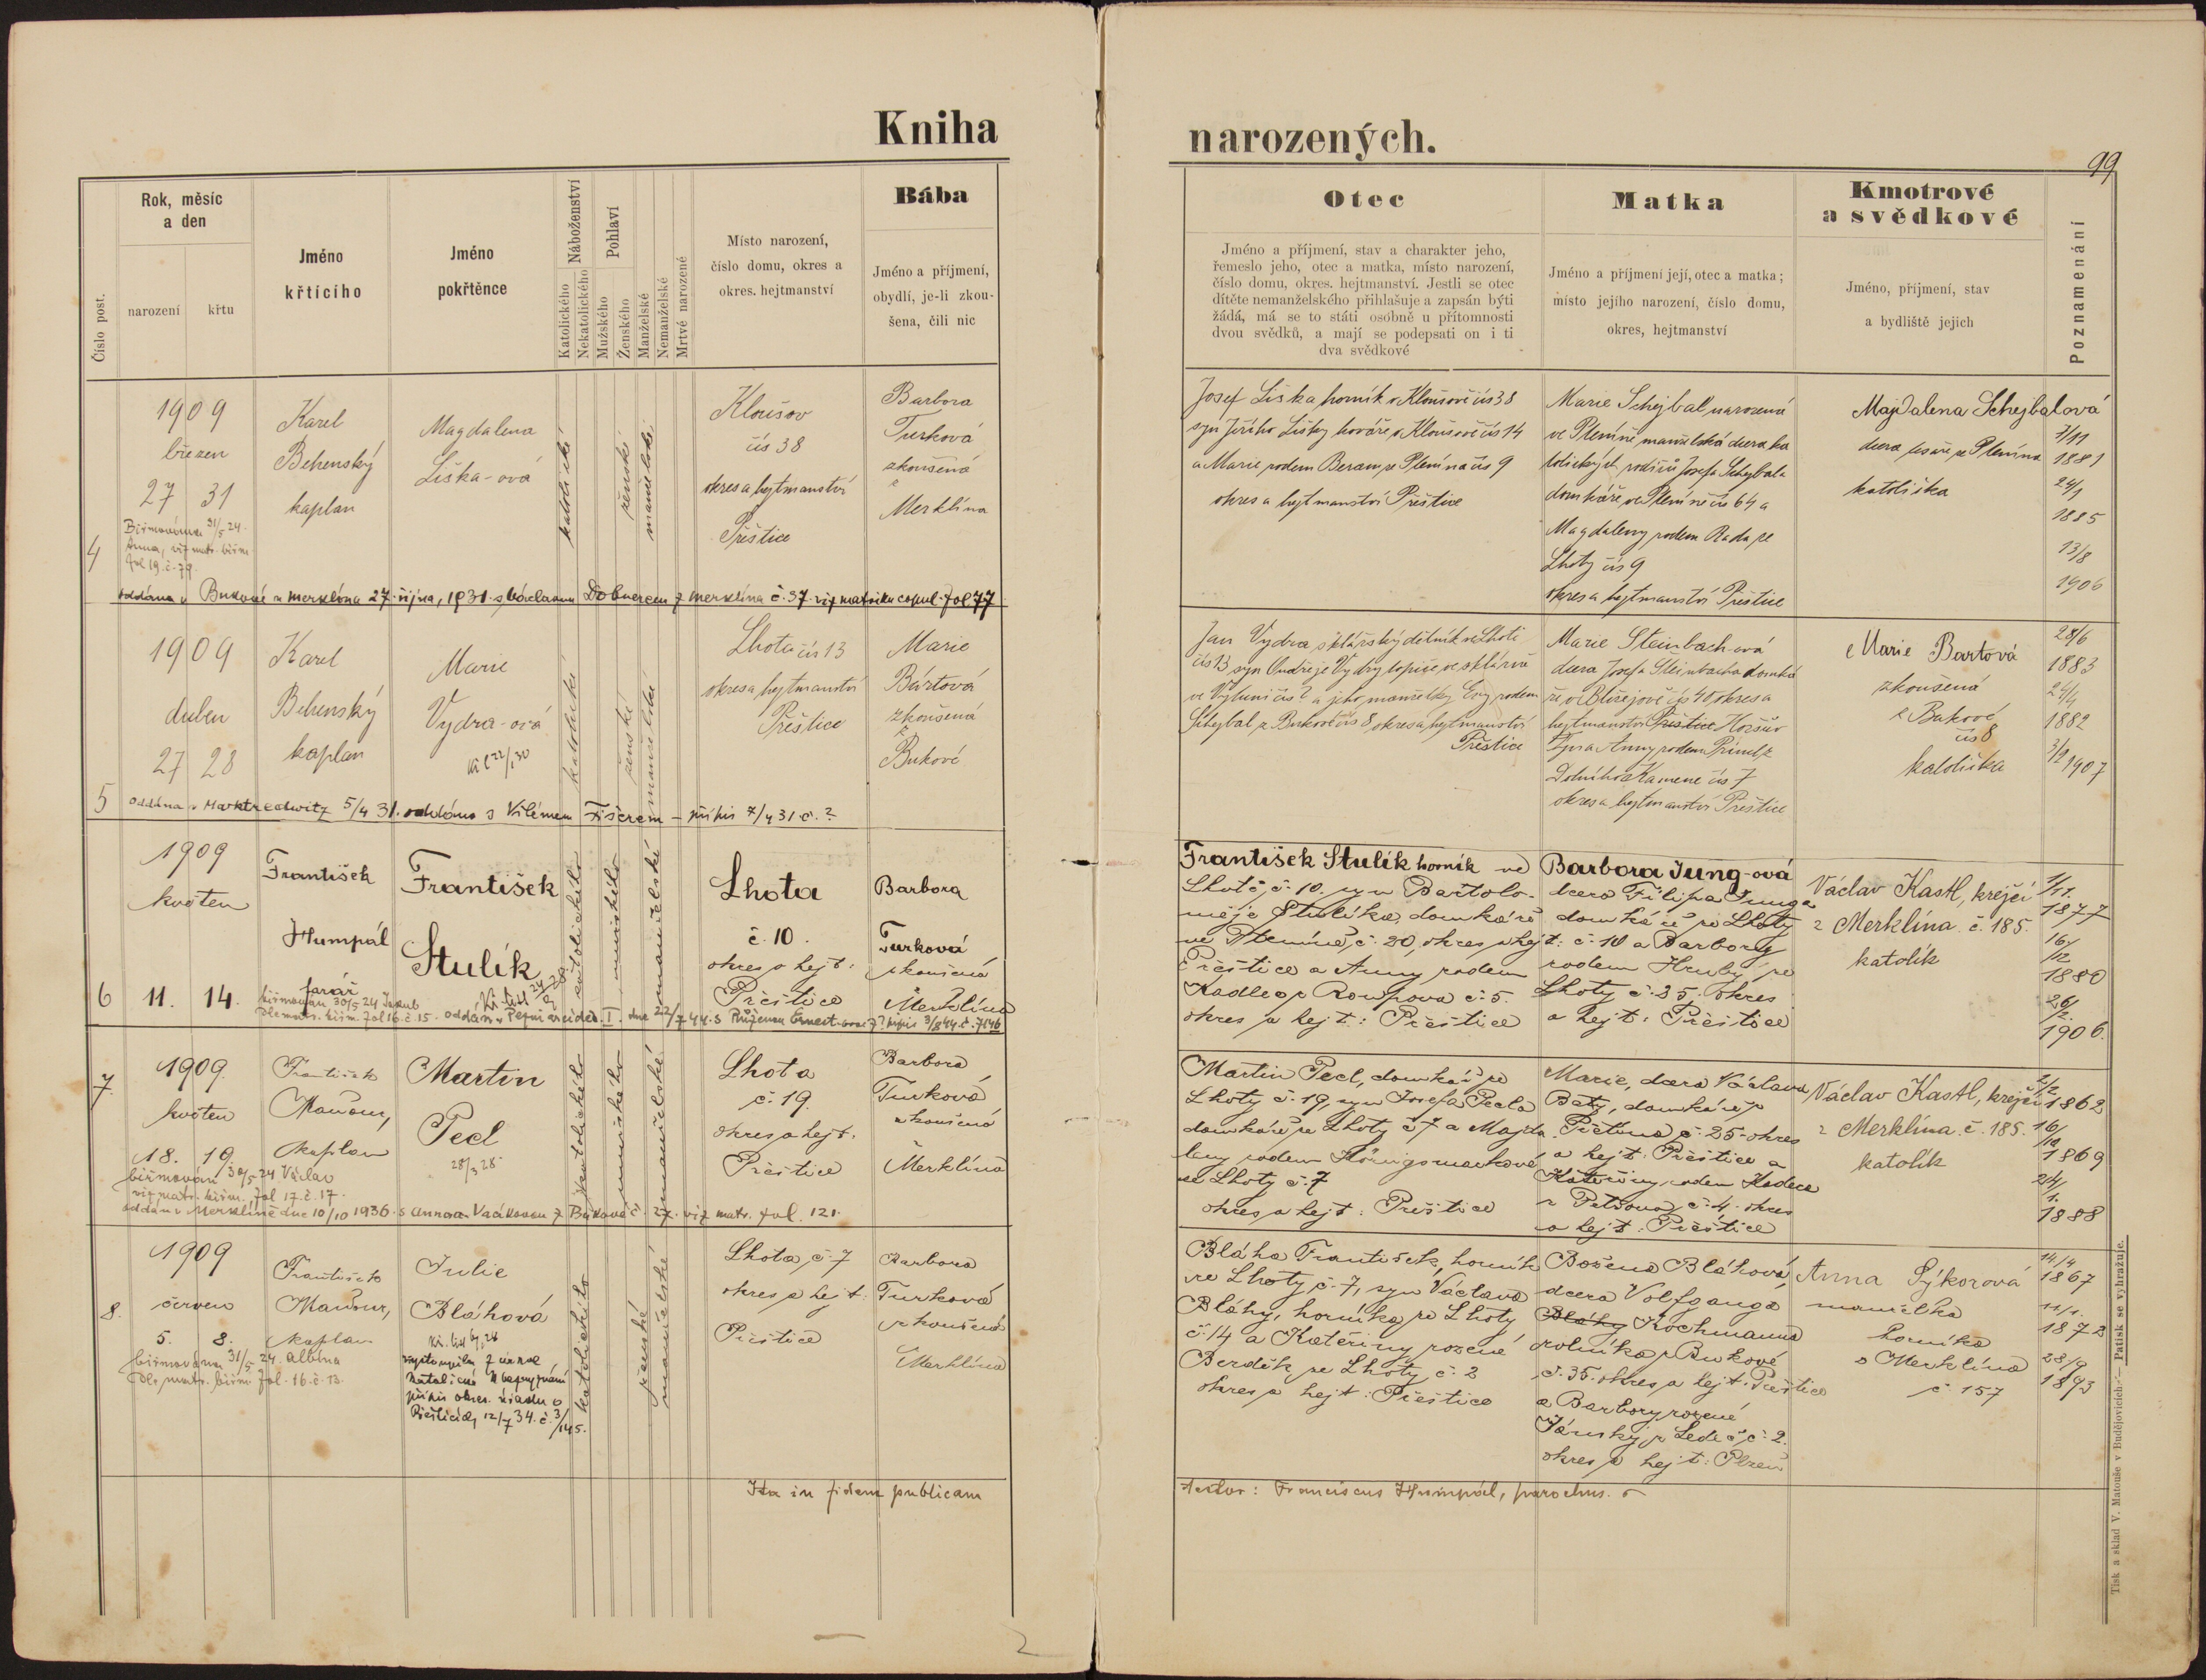 Kniha
narozených.
99
Číslo post.
Rok, měsíc
a den
narození
křtu
Jméno
křtícího
Jméno
pokřtěnce
Náboženství
Katolického
Nekatolického
Pohlaví
Mužského
Ženského
Manželské
Nemanželské
Mrtvě narozené
Místo narození,
číslo domu, okres a
okres. hejtmanství
Bába
Jméno a příjmení,
obydlí, je-li zkou-
šena, čili nic
Otec
Jméno a příjmení, stav a charakter jeho,
řemeslo jeho, otec a matka, místo narození,
číslo domu, okres. hejtmanství. Jestli se otec
dítěte nemanželského přihlašuje a zapsán býti
žádá, má se to státi osobně u přítomnosti
dvou svědků, a mají se podepsati on i ti
dva svědkové
Matka
Jméno a příjmení její, otec a matka;
místo jejího narození, číslo domu,
okres, hejtmanství
Kmotrové
a svědkové
Jméno, příjmení, stav
a bydliště jejich
Poznamenání
4
1909
březen
27 31
Biřmována 31/5 24.
Anna, viz matr. biřm.
fol 19. č. 79.
Karel
Behenský
kaplan
Magdalena
Liška-ová
katolické
ženské
manželské
Kloušov
čís 38
okres a hejtmanství
Přeštice
Barbora
Turková
zkoušená
z
Merklína
oddána v Bukové u Merklína 27. října, 1931. s Václavem Dobnerem z Merklína č. 37. viz matriku copul. fol 77
Josef Liška horník v Kloušově čís 38
syn Jiřího Lišky kováře v Kloušově čís 14
a Marie rodem Beram ze Plenína čís 9
okres a hejtmanství Přeštice
Marie Schejbal narozená
ve Pleníně manželská dcera ka
tolických rodičů Josefa Schejbala
domkáře ve Pleníně čís 64 a
Magdaleny rodem Rada ze
Lhoty čís 9
okres a hejtmanství Přeštice
Majdalena Schejbalová
dcera ze Plenína
katolička
7/11
1881
24/1
1885
13/8
1906
5
1909
duben
27 28
Karel
Behenský
kaplan
Marie
Vydra-ová
katolické
ženské
manželské
Lhota čís 13
okres a hejtmanství
Přeštice
Marie
Bártová
zkoušená
z
Bukové
oddána v Marktredwitz 5/4 31. oddána s Vilémem Fišerem – přípis 7/4 31 č. ?
Jan Vydra sklářský dělník ve Lhotě
čís 13 syn Ondřeje Vydry topiče ve sklárně
ve Výtuni čís ? a jeho manželky Evy rodem
Schejbal z Bukové čís 8 okres a hejtmanství
Přeštice
Marie Steinbach-ová
dcera Josefa Steinbacha domká
ře v Blížejově čís 40 okres a
hejtmanství Přeštice Horšův
Týn a Anny rodem
Dolního Kamene čís 7
okres a hejtmanství Přeštice
Marie Bartová
zkoušená
z Bukové
čís 8
katolička
28/6
1883
24/4
1882
3/2 1907
6
1909
květen
11. 14.
František
Humpál
farář
František
Stulík
katolického
mužského
manželské
Lhota
č. 10.
okres a hejt:
Přeštice
Barbora
Turková
zkoušená
Merklína
biřmován 30/5 24 Jakub
Dle matr. biřm. fol 16. č. 15. oddán v Plzni arciděk. I. dne 22/7 44. s Růženou přípis 3/8 44. č. 7146
František Stulík horník ve
Lhotě č. 10. syn Bartolo-
měje Stulíka, domkáře
ve Plenině, č. 20, okres a hejt:
Přeštice a Anny rodem
Kadlec z Roupova č. 5.
okres a hejt.: Přeštice
Barbora Jung-ová
dcera Filipa Junga
domkáře ze Lhoty
č. 10 a Barbory
rodem Hrubý ze
Lhoty č. 35, okres
a hejt: Přeštice
Václav Kastl, krejčí
z Merklína č. 185.
katolík
1/11.
1877
16/
12
1880
26/
2.
1906.
7.
1909.
květen
18. 19.
biřmován 30/5 24 Václav
viz matr. biřm. fol 17. č. 17.
František
Maňour,
kaplan
Martin
Pecl
28/3 28
katolického
mužského
manželské
Lhota
č. 19.
okres a hejt.
Přeštice
Barbora
Turková
zkoušená
Merklína
oddán v Merklíně dne 10/10 1936. s Annou Vackovou z Bukové č. 27. viz matr. fol. 121.
Martin Pecl, domkář ze
Lhoty č. 19, syn Josefa Pecla
domkáře ze Lhoty č 7 a Majda-
leny rodem Königsmarkové
ze Lhoty č. 7
okres a hejt: Přeštice
Marie, dcera Václava
Baty, domkáře z
Petrova, č. 25. okres
a hejt: Přeštice a
Kateřiny, rodem Kadlec
z Petrova, č. 4. okres
a hejt: Přeštice
Václav Kastl, krejčí
z Merklína č. 185.
katolík
2/2
1862
16/
10
1869
24/
1.
1888
8.
1909
červen
5. 8.
biřmována 31/5 24. Albína
Dle matr. biřm. fol. 16. č. 13.
František
Maňour,
kaplan
Julie
Bláhová
vystoupila z církve
katolické
přípis okres. úřadu v
Přešticích, 12/7 34. č. 3/145.
katolického
ženské
manželské
Lhota, č. 7
okres a hejt:
Přeštice
Barbora
Turková
zkoušená
Merklína
Bláha František, horník
ve Lhoty č. 7, syn Václava
Bláhy, horníka ze Lhoty
č. 14 a Kateřiny rozené
Berdík ze Lhoty, č. 2
okres a hejt: Přeštice
Božena Bláhová,
dcera Volfganga
Bláhy Kochmanna
rolníka z Bukové
č. 35. okres a hejt. Přeštice
a Barbory rozené
Jánský z Ledče, č. 2.
okres a hejt: Plzeň
Anna Sýkorová
manželka
horníka
z Merklína
č. 157
14/4
1867
11/1.
1872
28/9
1893
Ita in fidem publicam
testor: Franciscus Humpál, parochus.
Tisk a sklad V. Matouše v Budějovicích. — Patisk se vyhražuje.
2